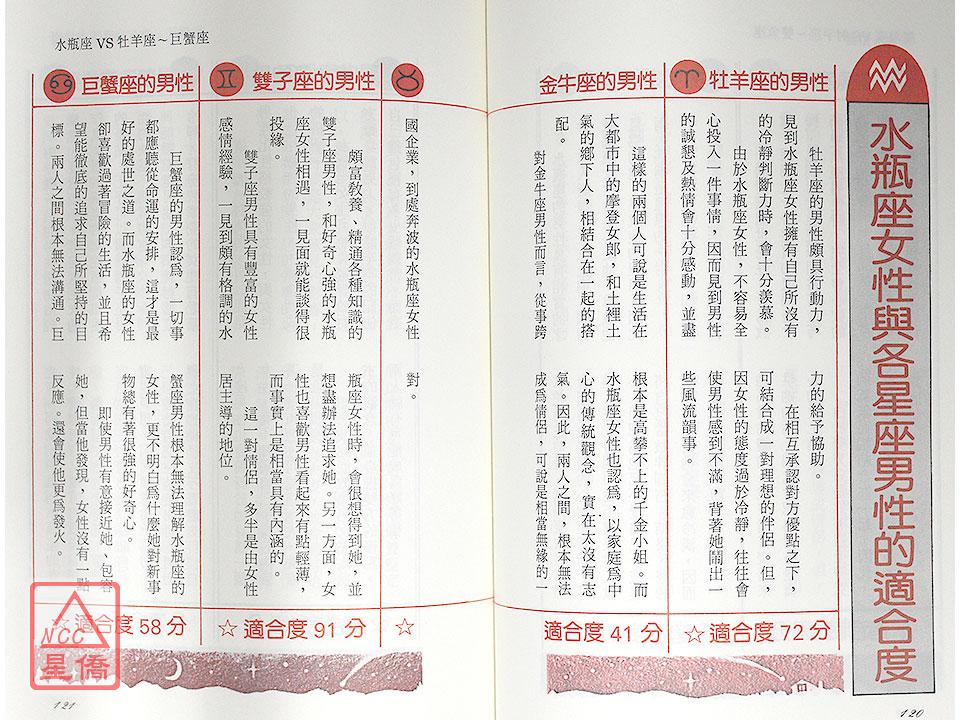 水瓶座女性與各星座男性的適合度
牡羊座的男性
牡羊座的男性頗具行動力，
見到水瓶座女性擁有自己所沒有
的冷靜判斷力時，會十分羨慕。
由於水瓶座女性，不容易全
心投入一件事情，因而見到男性
的誠懇及熱情會十分感動，並盡
力的給予協助。
在相互承認對方優點之下，
可結合成一對理想的伴侶。但，
因女性的態度過於冷靜，往往會
使男性感到不滿，背著她鬧出一
些風流韻事。
☆適合度72分
金牛座的男性
這樣的兩個人可說是生活在
大都市中的摩登女郎，和土裡土
氣的鄉下人，相結合在一起的搭
配。
對金牛座男性而言，從事跨
根本是高攀不上的千金小姐。而
水瓶座女性也認為，以家庭為中
心的傳統觀念，實在太沒有志
氣。因此，兩人之間，根本無法
成為情侶，可說是相當無緣的一
適合度41分
120
水瓶座VS牡羊座～巨蟹座
國企業，到處奔波的水瓶座女性
對。
☆
雙子座的男性
頗富教養、精通各種知識的
雙子座男性，和好奇心強的水瓶
座女性相遇，一見面就能談得很
投緣。
雙子座男性具有豐富的女性
感情經驗，一見到頗有格調的水
瓶座女性時，會很想得到她，並
想盡辦法追求她。另一方面，女
性也喜歡男性看起來有點輕薄，
而事實上是相當具有內涵的。
這一對情侶，多半是由女性
居主導的地位。
☆適合度91分
巨蟹座的男性
巨蟹座的男性認為，一切事
都應聽從命運的安排，這才是最
好的處世之道。而水瓶座的女性
卻喜歡過著冒險的生活，並且希
望能徹底的追求自己所堅持的目
標。兩人之間根本無法溝通。巨
蟹座男性根本無法理解水瓶座的
女性，更不明白為什麼她對新事
物總有著很強的好奇心。
即使男性有意接近她、包容
她，但當他發現，女性沒有一點
反應。還會使他更為發火。
☆適合度58分
NCC
星僑
121